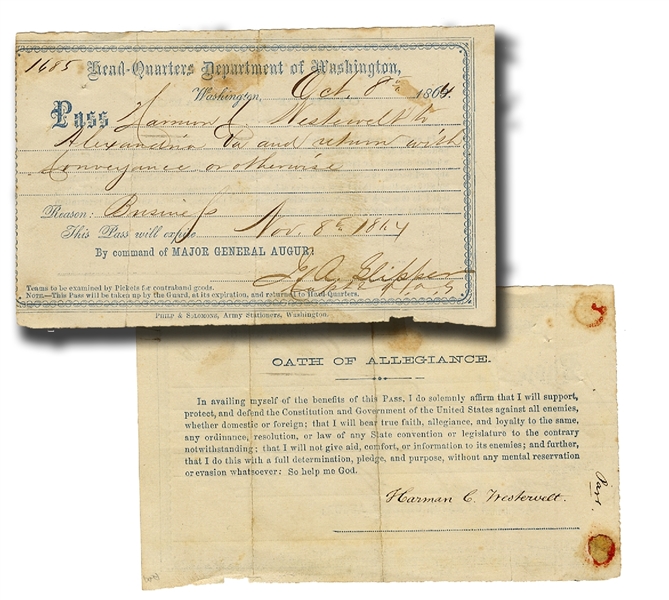 1685
Head-Quarters Department of Washington,
Washington, Oct. 8th 1864.
Pass Harmon C Westervelt to
Alexandria Va and return with
Conveyance or otherwise
Reason: Business
This Pass will expire Nov. 8th 1864
By command of MAJOR GENERAL AUGUR:
Teams to be examined by Pickets for contraband goods.
NOTE.—This Pass will be taken up by the Guard, at its expiration, and returned to Head-Quarters.
PHILP & SOLOMONS, Army Stationers, Washington.
OATH OF ALLEGIANCE.
In availing myself of the benefits of this Pass, I do solemnly affirm that I will support,
protect, and defend the Constitution and Government of the United States against all enemies,
whether domestic or foreign; that I will bear true faith, allegiance, and loyalty to the same,
any ordinance, resolution, or law of any State convention or legislature to the contrary
notwithstanding; that I will not give aid, comfort, or information to its enemies; and further,
that I do this with a full determination, pledge, and purpose, without any mental reservation
or evasion whatsoever: So help me God.
Harman C. Westervelt.
Pass.